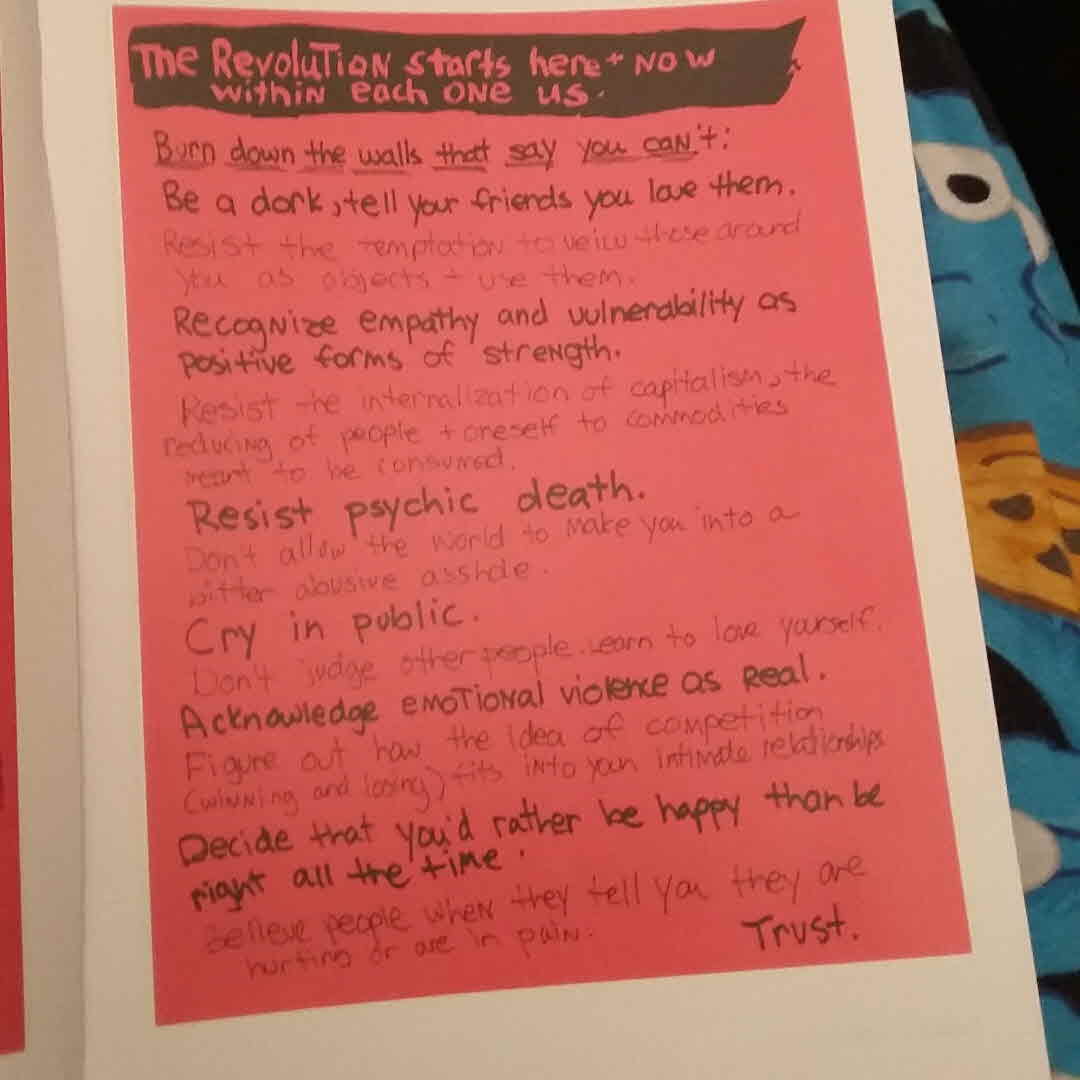 The Revolution starts here + NOW
within each one us.
Burn down the walls that say you can't:
Be a dork, tell your friends you love them.
Resist the temptation to veiw those around
you as objects + use them.
Recognize empathy and vulnerability as
positive forms of strength.
Resist the internalization of capitalism, the
reducing of people + oneself to commodities
meant to be consumed.
Resist psychic death.
Don't allow the world to make you into a
bitter abusive asshole.
Cry in public.
Don't judge other people. Learn to love yourself.
Acknowledge emotional violence as real.
Figure out how the idea of competition
(winning and losing) fits into your intimate relationships
Decide that you'd rather be happy than be
right all the time.
Believe people when they tell you they are
hurting or are in pain.
Trust.